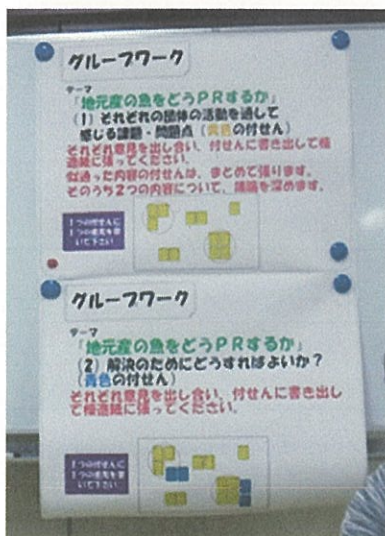 グループワーク
テーマ
「地元産の魚をどうPRするか」
(1) それぞれの団体の活動を通して
感じる課題・問題点(黄色の付せん)
それぞれ意見を出し合い、付せんに書き出して模
造紙に張ってください。
似通った内容の付せんは、まとめて張ります。
そのうち2つの内容について、議論を深めます。
1つの付せんに
1つの意見を書
いて下さい
グループワーク
テーマ
「地元産の魚をどうPRするか」
(2) 解決のためにどうすればよいか?
(青色の付せん)
それぞれ意見を出し合い、付せんに書き出し
て模造紙に張ってください。
1つの付せんに
1つの意見を書
いて下さい